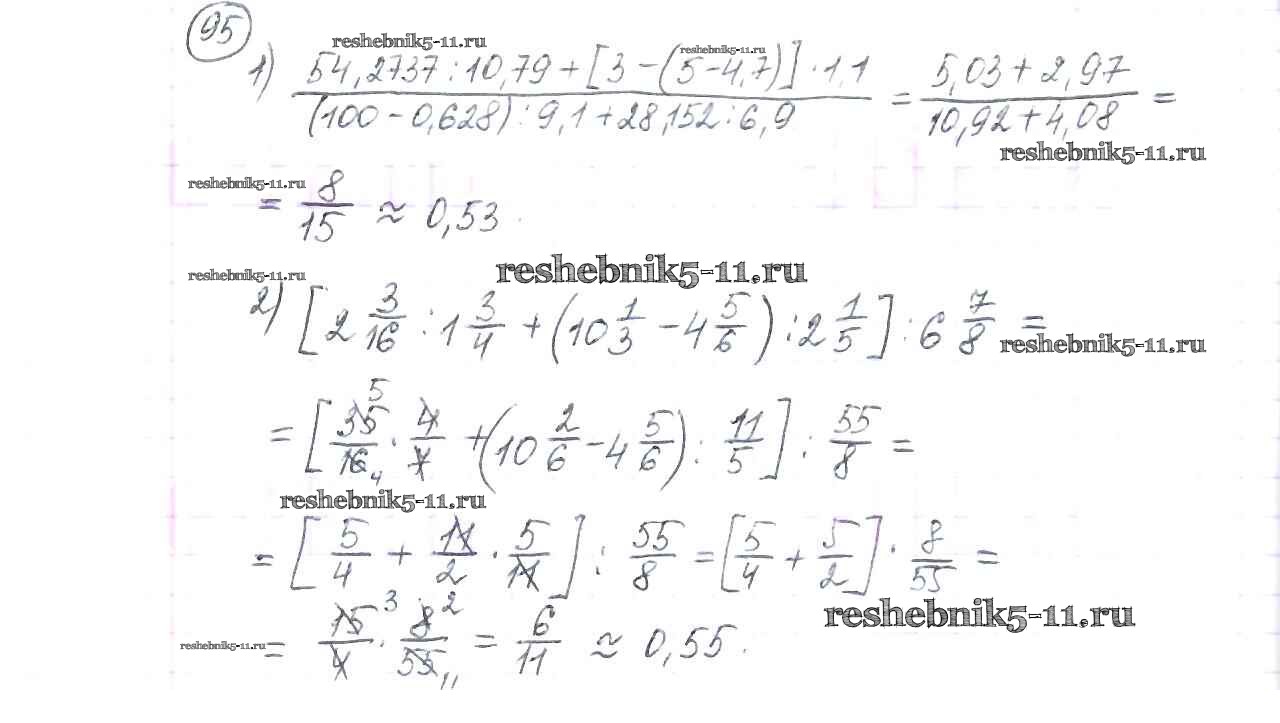 95
reshebnik5-11.ru
reshebnik5-11.ru
1) (54,2737 : 10,79 + [3 − (5 − 4,7)] · 1,1) / ((100 − 0,628) : 9,1 + 28,152 : 6,9) = (5,03 + 2,97) / (10,92 + 4,08) =
reshebnik5-11.ru
reshebnik5-11.ru
= 8/15 ≈ 0,53.
reshebnik5-11.ru
reshebnik5-11.ru
2) [2 3/16 : 1 3/4 + (10 1/3 − 4 5/6) : 2 1/5] : 6 7/8 =
reshebnik5-11.ru
= [35/16 · 4/7 + (10 2/6 − 4 5/6) : 11/5] : 55/8 =
5 4
reshebnik5-11.ru
= [5/4 + 11/2 · 5/11] : 55/8 = [5/4 + 5/2] · 8/55 =
reshebnik5-11.ru
reshebnik5-11.ru
= 15/4 · 8/55 = 6/11 ≈ 0,55.
3 2 11